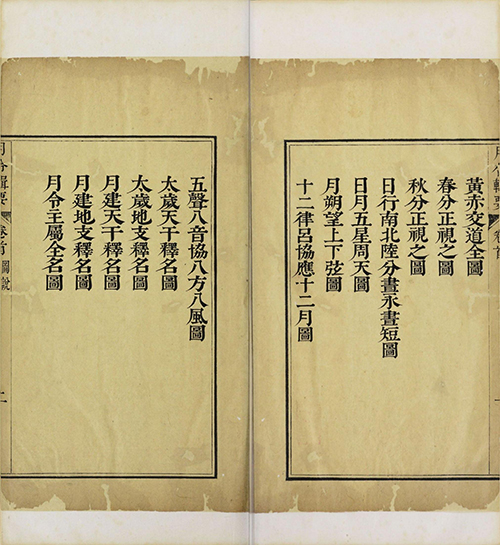 月令輯要 卷首 一
黃赤交道全圖
春分正視之圖
秋分正視之圖
日行南北陸分晝永晝短圖
日月五星周天圖
月朔望上下弦圖
十二律呂協應十二月圖
五聲八音協八方八風圖
太歲天干釋名圖
太歲地支釋名圖
月建天干釋名圖
月建地支釋名圖
月令主屬全名圖
月令輯要 卷首 圖說 二